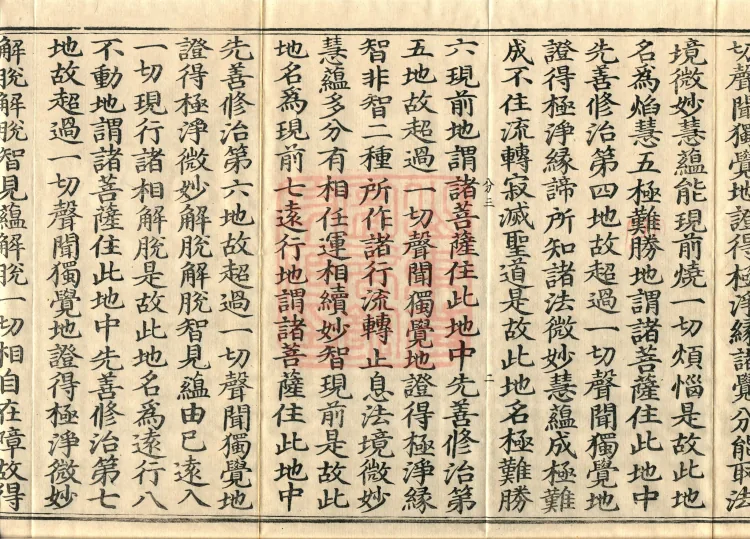 切聲聞獨覺地證得極淨緣諸覺分能取法
境微妙慧蘊能現前燒一切煩惱是故此地
名為焰慧五極難勝地謂諸菩薩住此地中
先善修治第四地故超過一切聲聞獨覺地
證得極淨緣諦所知諸法微妙慧蘊成極難
成不住流轉寂滅聖道是故此地名極難勝
分三 二
六現前地謂諸菩薩住此地中先善修治第
五地故超過一切聲聞獨覺地證得極淨緣
智非智二種所作諸行流轉止息法境微妙
慧蘊多分有相任運相續妙智現前是故此
地名為現前七遠行地謂諸菩薩住此地中
先善修治第六地故超過一切聲聞獨覺地
證得極淨微妙解脫解脫智見蘊由已遠入
一切現行諸相解脫是故此地名為遠行八
不動地謂諸菩薩住此地中先善修治第七
地故超過一切聲聞獨覺地證得極淨微妙
解脫解脫智見蘊解脫一切相自在障故得